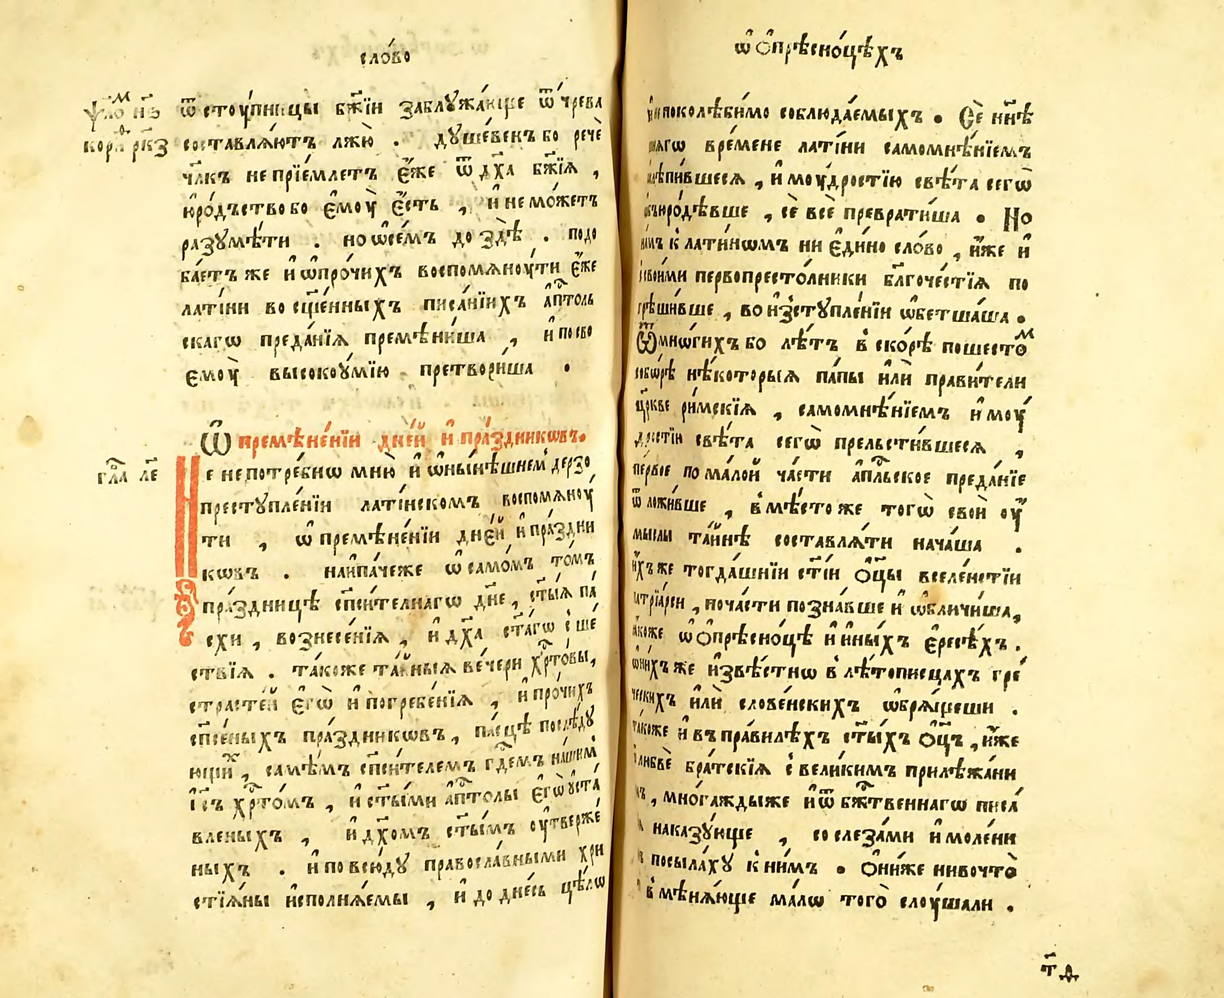 сло́во
ѱло́м н҃з
кори҇н рк҃з
ѿстоу́пницы бж҃їи заблужа́юще ѿ чрева
составлѧ́ютъ лжю̀ . душе́венъ бо речѐ
чл҃къ не прїе́млетъ є҆́же ѿ дх҃а бж҃їѧ ,
юро́дъство бо є҆моу̀ є҆́сть , и҆ не мо́жетъ
разумѣ́ти . но ѡ҆ се́мъ до здѣ̀ . подо
ба́етъ же и҆ ѡ҆ про́чихъ воспомѧноу́ти є҆́же
лати́ни во сщ҃е́нныхъ писа́нїихъ а҆пⷭ҇толь
скагѡ преда́нїѧ премѣни́ша , и҆ по сво
є҆моу̀ высокоу́мїю претвори́ша .
Ѡ҆ премѣне́нїи дне́й и҆ пра́здникѡвъ.
гла҇в а҃е
Не непотре́бнѡ мню̀ и҆ ѡ҆ ны́нѣшнем дерзо
преступле́нїи лати́нскомъ воспомѧноу́
ти , ѡ҆ премѣне́нїи дне́й и҆ пра́здни
кѡвъ . наи́паче же ѡ҆ само́мъ то́мъ
пра́здницѣ сп҃си́телнагѡ дн҃е , ст҃ы́ѧ па́
схи , вознесе́нїѧ , и҆ дх҃а ст҃а́гѡ соше
ствїѧ . та́коже та́йныѧ ве́чери хрⷭ҇то́вы,
страсте́й є҆гѡ̀ и҆ погребе́нїѧ , и҆ про́чихъ
сп҃се́ныхъ пра́здникѡвъ , па́сцѣ послѣ́ду
ющих , самѣ́мъ сп҃си́телемъ гдⷭ҇емъ на́шим
і҆с҃ъ хрⷭ҇то́мъ , и҆ ст҃ы́ми а҆пⷭ҇толы є҆гѡ̀ оу҆ста́
вленыхъ , и҆ дх҃омъ ст҃ы́мъ оу҆тверже́
ныхъ . и҆ по всю́ду правосла́вными хри
стїѧ́ны и҆сполнѧ́емы , и҆ до дне́сь цѣ́лѡ
ѡ҆ ѻ҆прѣсно́цѣхъ
и҆ непоколѣби́мо соблюда́емыхъ . Се́ нн҃ѣ
вре́мене лати́ни самомнѣ́нїемъ
и҆ моу́дростїю свѣ́та сегѡ̀
ѡ҆бъюро́дѣвше , сѐ всѐ преврати́ша . Но
на́мъ к лати́нѡмъ ни є҆ди́но сло́во , и҆́же и҆
свои́ми первопресто́лники бл҃гоче́стїѧ по
грѣши́вше , во и҆зступле́нїи ѡ҆бетша́ша .
Ѿ мнѡ́гихъ бо лѣ́тъ в ско́рѣ по шесто́м
собо́рѣ нѣ́которыѧ па́пы и҆лѝ прави́тели
цр҃кве ри́мскїѧ , самомнѣ́нїемъ и҆ моу́
дростїи свѣ́та сегѡ̀ прельсти́вшеся ,
пе́рвое по ма́лой ча́сти а҆пⷭ҇льское преда́нїе
ѿложи́вше , вмѣ́сто же тогѡ̀ свой оу҆́
мыслы та́йнѣ составлѧ́ти нача́ша .
и҆́хъже тогда́шнїи ст҃і́и ѻ҆ц҃ы вселе́нстїи
патрїа́рси , поча́сти позна́вше и҆ ѡ҆бличи́ша,
ꙗ҆́коже ѡ҆ ѻ҆прѣсно́цѣ и҆ и҆ны́хъ є҆ресѣ́хъ .
ѡ҆ ни́хъ же и҆звѣ́стнѡ в лѣтопи́сцахъ гре́
ческихъ и҆лѝ слове́нскихъ ѡ҆брѧ́щеши .
та́коже и҆ въ пра́вилѣхъ ст҃ы́хъ ѻ҆ц҃ъ , и҆́же
люббѐ бра́тскїѧ с вели́кимъ прилѣжа́ни
мъ , многа́жды же и҆ ѿ бжⷭ҇твеннагѡ писа́
наказу́юще , со слеза́ми и҆ моле́ни
посыла́ху к ни́мъ . Ѻ҆ни́же нивочто̀
вмѣнѧ́юще ма́лѡ того̀ слоу́шали .
т҃д